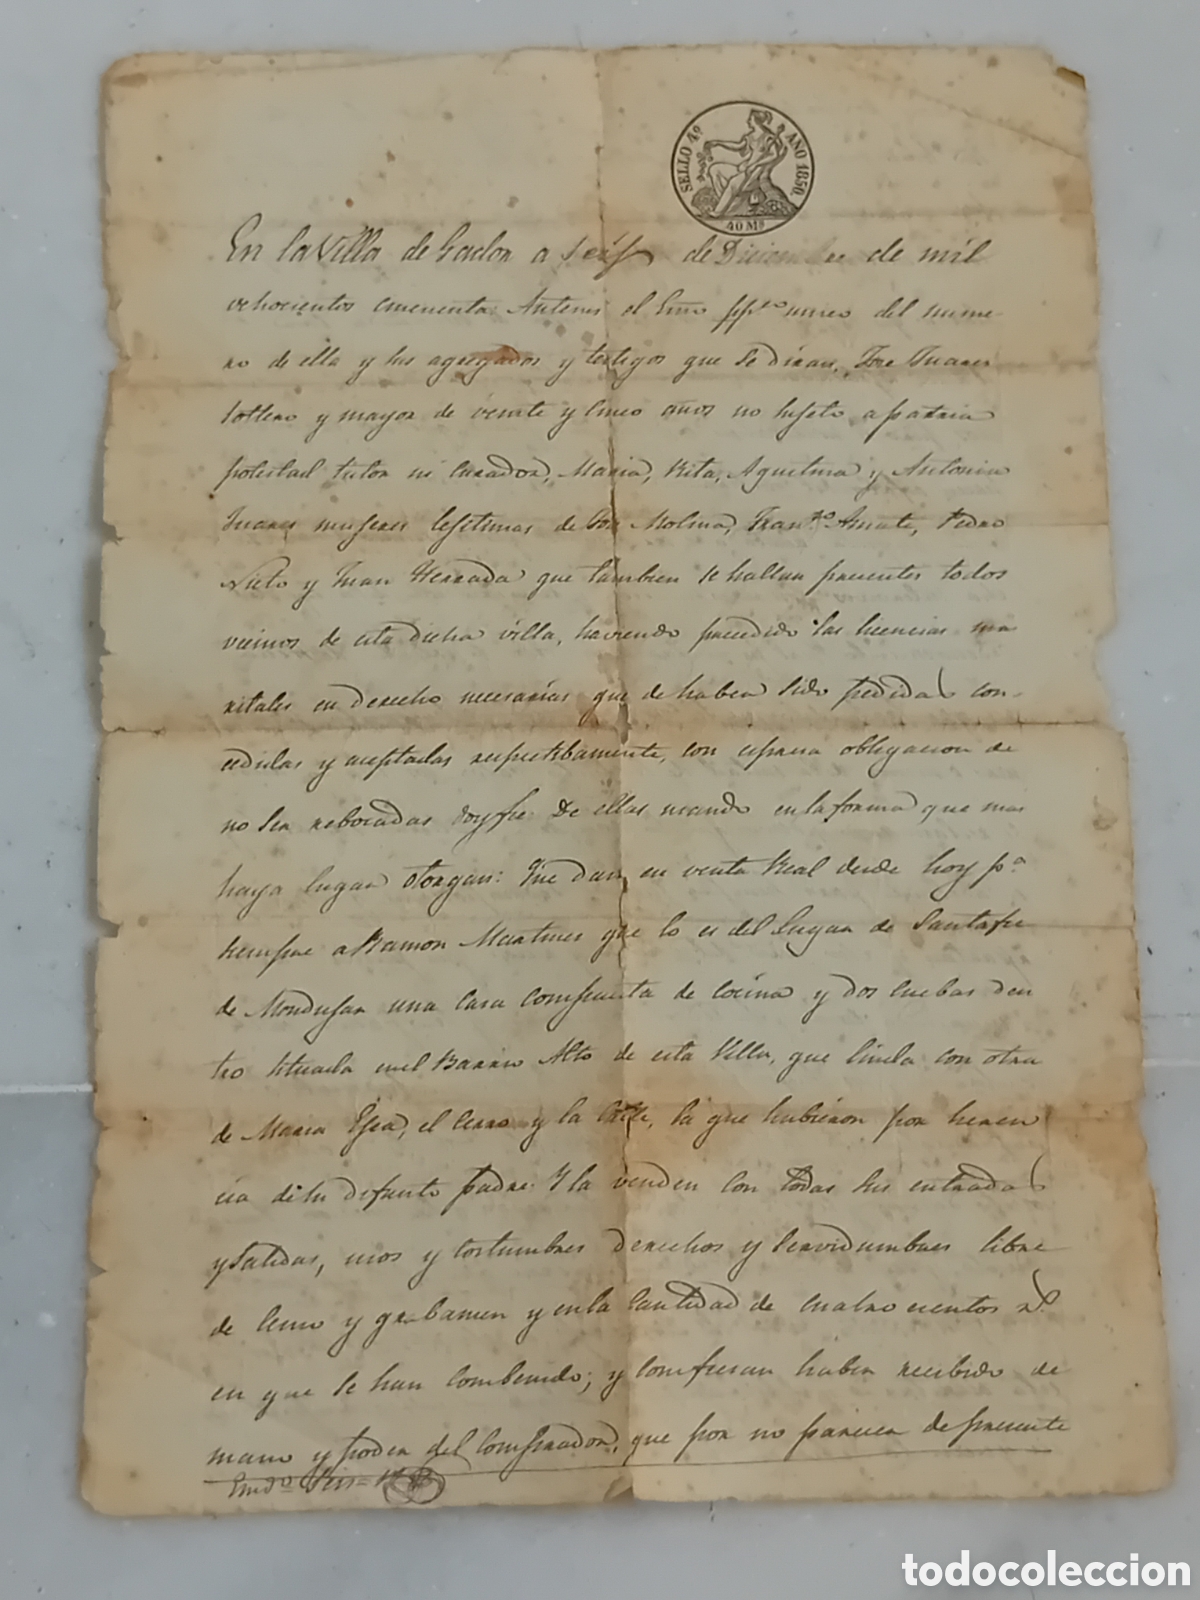 SELLO 4º AÑO 1850.
40 Ms
En la Villa de Gador a seis de Diciembre de mil
ochocientos cincuenta: Antemi el Esno ppco unico del nume-
ro de ella y sus agregados y testigos que se diran, Jose Juares
soltero y mayor de veinte y cinco años no sujeto a patria
potestad tutor ni curador, Maria, Rita, Agustina y Antonia
Juares mujeres lejitimas de Jose Molina, Franco Amate, Pedro
Nieto y Juan Herrada que tambien se hallan presentes todos
vecinos de esta dicha villa, haviendo precedido las licencias ma
ritales en derecho necesarias que de haber sido pedidas con-
cedidas y aceptadas respectibamente, con espresa obligacion de
no ser rebocadas doy fe: De ellas usando en la forma que mas
haya lugar otorgan: Que dan en venta Real desde hoy pa
siempre a Ramon Martines que lo es del Lugar de Santafe
de Mondujar una casa compuesta de cocina y dos cuebas den
tro situada en el Barrio Alto de esta Villa, que linda con otra
de Maria Ejea, el cerro y la Calle, la que hubieron por heren
cia de su difunto padre. Y la venden con todas sus entradas
y salidas, usos y costumbres derechos y servidumbres libre
de censo y grabamen y en la cantidad de cuatro cientos rs.
en que se han combenido; y confiesan haber recibido de
mano y poder del comprador, que por no parecer de presente
Emdo seis=
todocoleccion